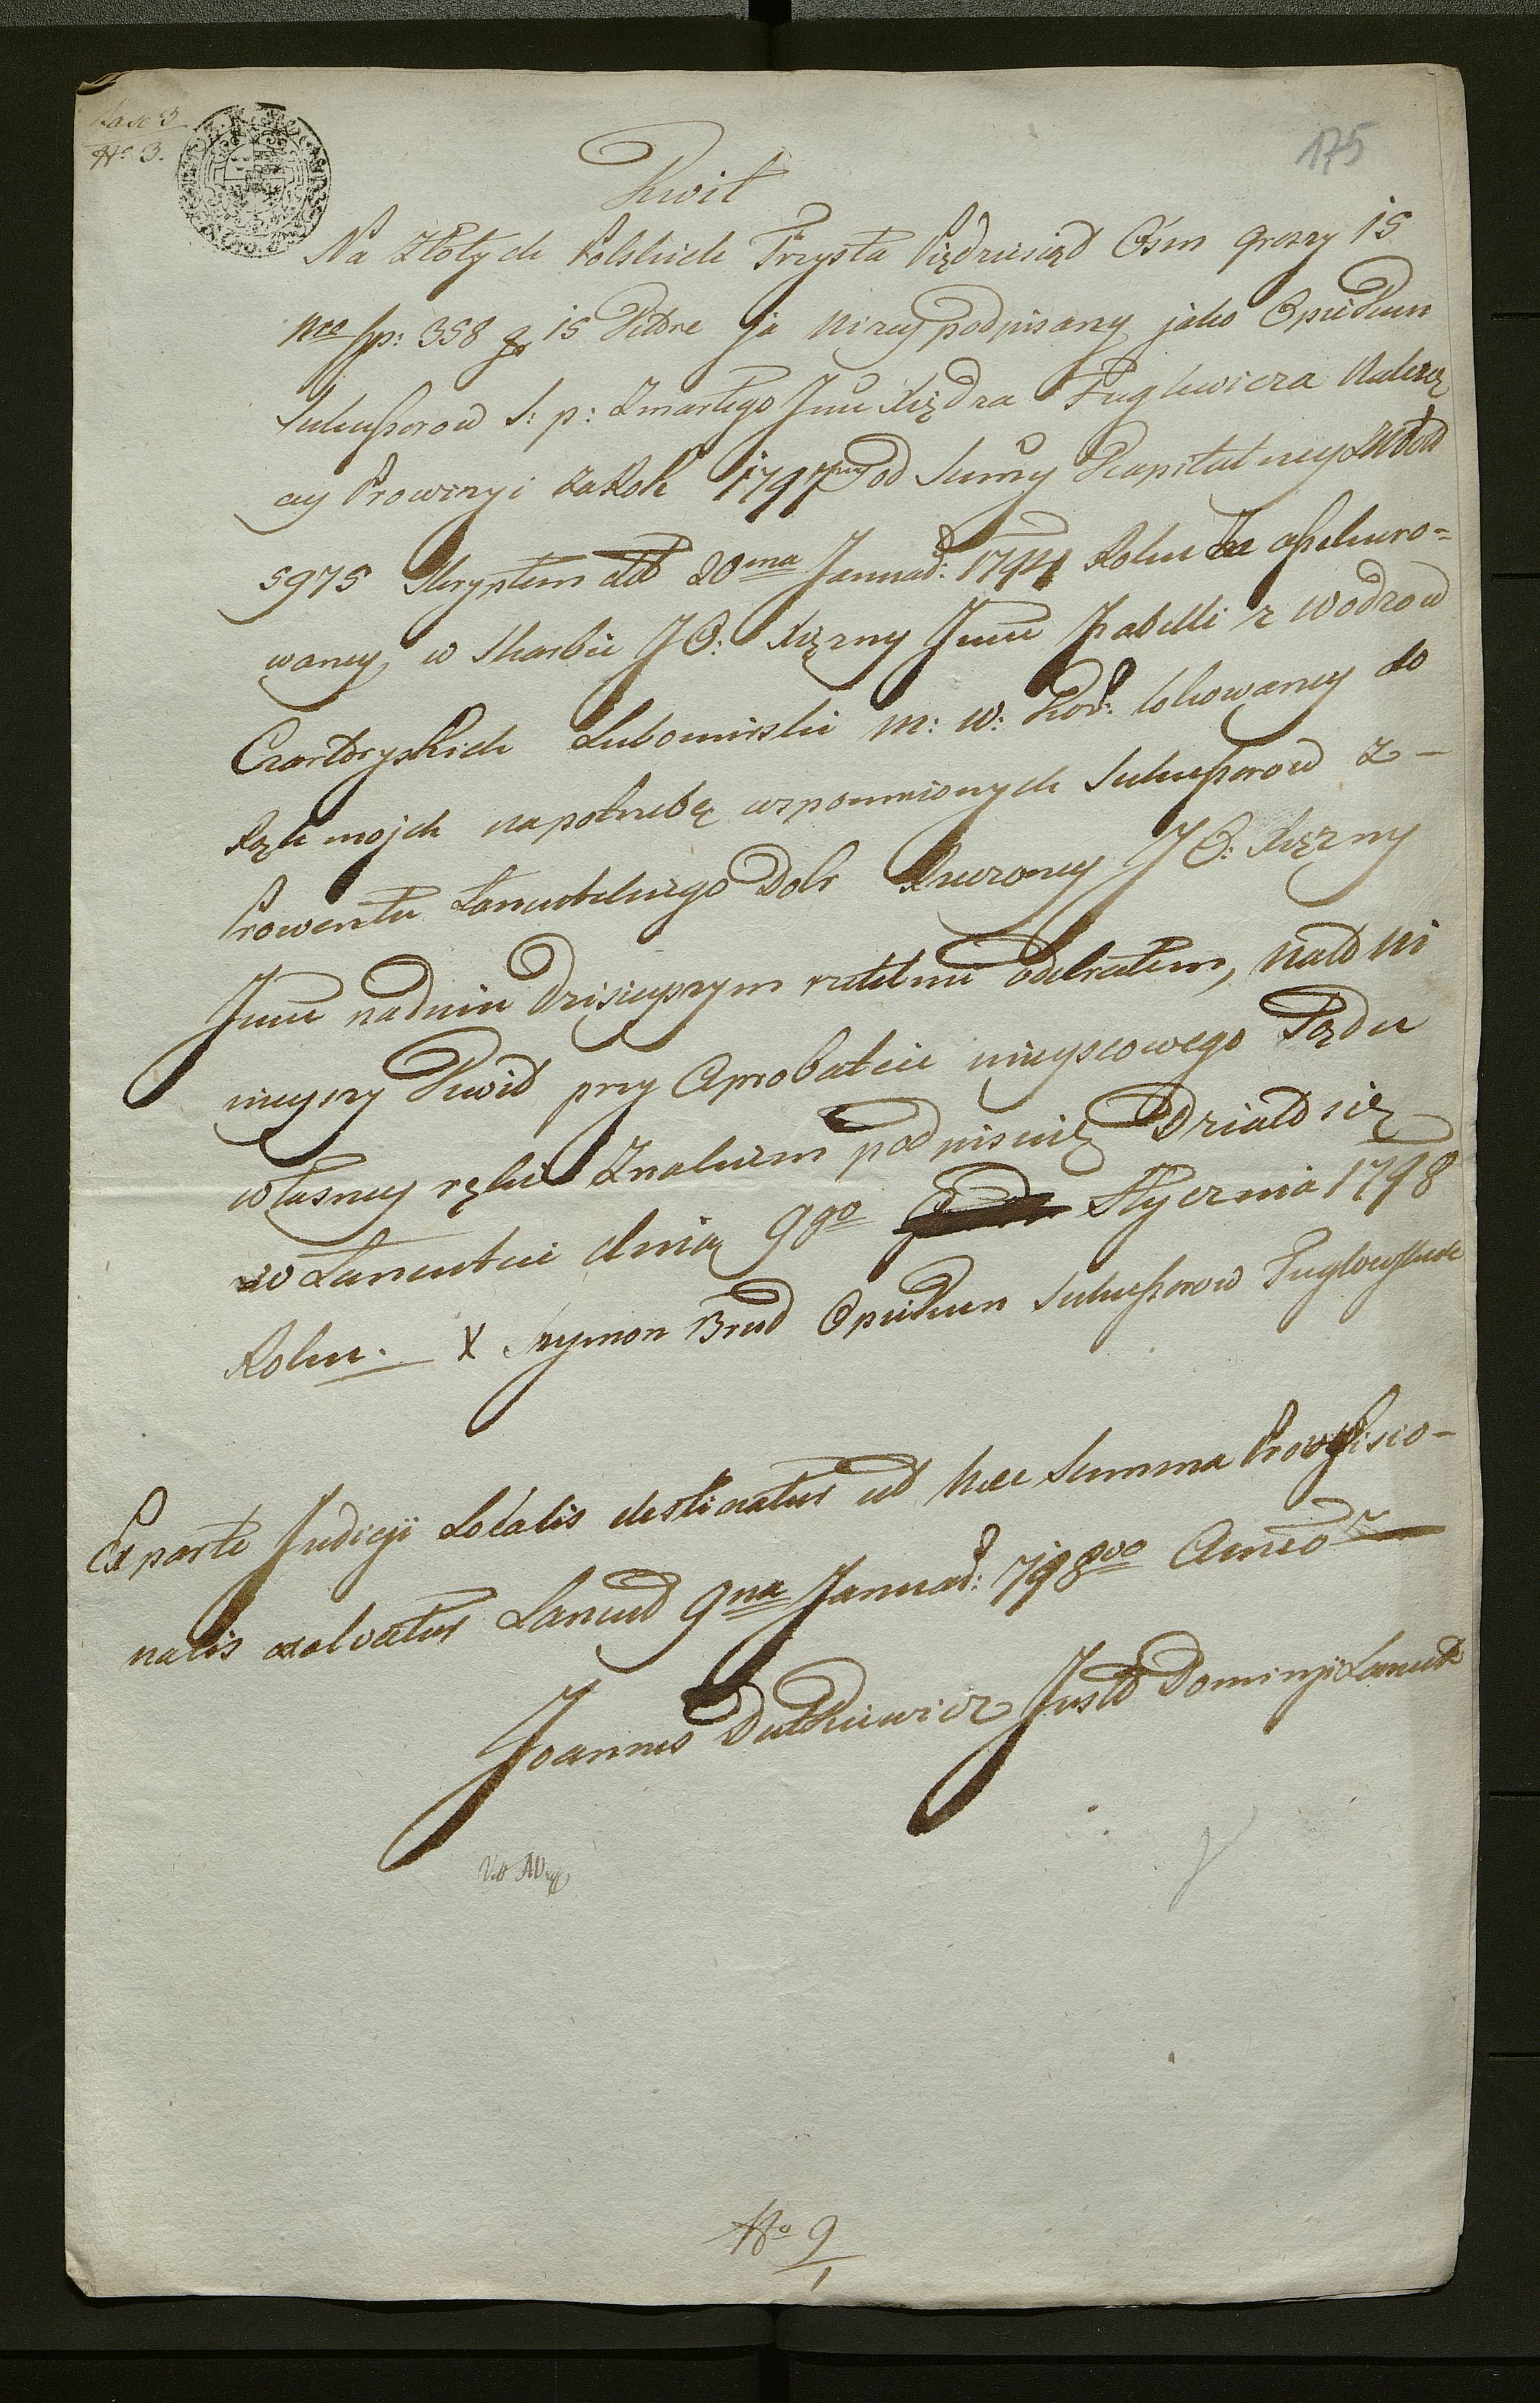 Fasc 3
No 3.
175
Kwit
Na Złotych Polskich Trzysta Pięđziesiąd Osm groszy 15
Nro fp: 358 gr 15 Które ja nizey podpisany jako Opiekun
Sukcessorow S: p: Zmarłego Jmc Xiędza Puglewicza Należą
cey Prowizyi za Rok 1797 od Summy Kapitalney
5975 Skryptem dtto 20ma Januar: 1794 Roku assekuro=
waney w Skarbie JO: Xiężny Jmci Izabelli z Wodzow
Czartoryskich Lubomirski M: W: Kor: lokowaney do
Rąk mojch na potrzebę wzpomnionych Sukcessorow z -
Prowentu Łancutskiego Dobr Rzeczoney JO: Xiężny
Jmci na dniu dzisieyszym rzetelnie odebrałem, Nato ni
nieyszy Kwit przy Aprobatcie mieyscowego Sądu
własney ręki Znakiem podpisuię Działo się
w Łancutcie dnia 9go Stycznia 1798
Roku. X Szymon Brud Opiekun Sukcessorow Puglewskich
Ex parte Judicji Localis destinatur ut hec Summa Provisio-
nalis exolvatur Lancut 9na Januar: 798vo
Joannes Dutkiewicz Just Dominji Lancut
No 9
1